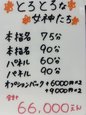 とろとろな
女神たち
本格名 75分
本格名 90分
パネル 60分
パネル 90分
オプションパック+6000円×2
+9000円×2
合計
66,000えん